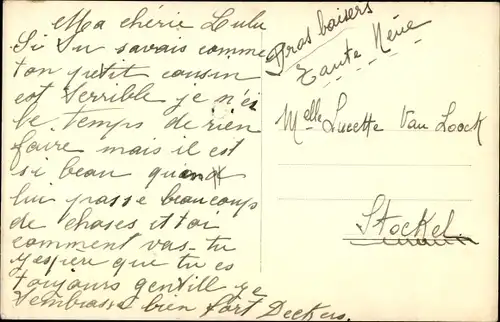 Ma chérie Lulu
Si tu savais comme
ton petit cousin
est terrible je n'ei
le temps de rien
faire mais il est
si beau quand
lui passe beaucoup
de choses et toi
comment vas-tu
j'espère que tu es
toujours gentille je
t'embrasse bien fort Deckers.
Gros baisers
Tante Néne
Melle Lucette Van Loock
Stockel